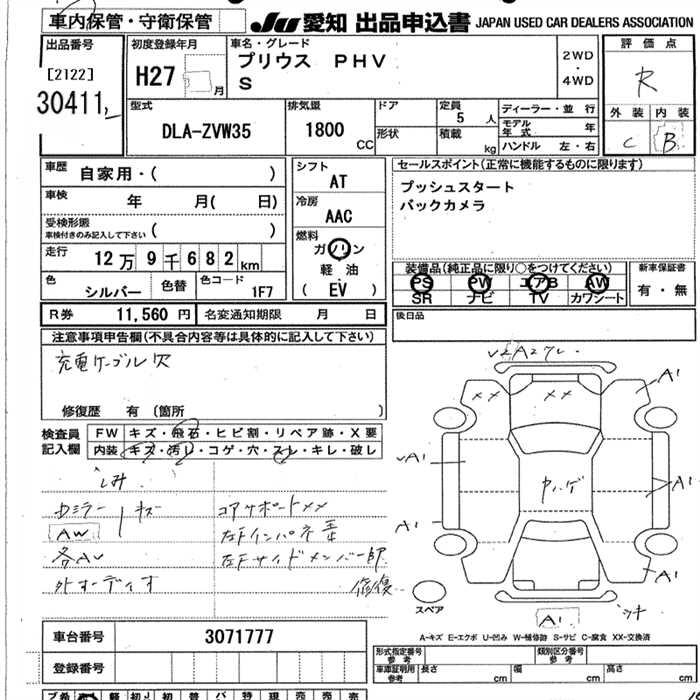 車内保管・守衛保管
JU 愛知 出品申込書 JAPAN USED CAR DEALERS ASSOCIATION
出品番号
[2122]
30411
初度登録年月
H27 月
車名・グレード
プリウス PHV
S
2WD
・
4WD
評価点
R
外装 内装
C B
型式
DLA-ZVW35
排気量
1800 CC
ドア
形状
定員
5 人
積載 kg
ディーラー・並行
モデル年式 年
ハンドル 左・右
車歴 自家用・( )
車検 年 月( 日)
受検形態
車検付きのみ記入して下さい ( )
走行 12万9千682km
色 シルバー 色替 色コード 1F7
シフト
AT
冷房
AAC
燃料
ガソリン
軽油
( EV )
セールスポイント(正常に機能するものに限ります)
プッシュスタート
バックカメラ
装備品(純正品に限り○をつけてください)
PS PW エアB AW
SR ナビ TV カワシート
新車保証書
有・無
R券 11,560円 名変通知期限 月 日
後日品
注意事項申告欄(不具合内容等は具体的に記入して下さい)
充電ケーブル欠
修復歴 有 (箇所 )
検査員
記入欄
FW キズ・飛石・ヒビ割・リペア跡・X要
内装 キズ・汚レ・コゲ・穴・スレ・キレ・破レ
しみ
カミラー キズ
AW
各AW
外オーディオ
コアサポートXX
左Fインパネ歪
左Fサイドメンバー部
修復
A2
XX XX
A1
A1
A1
A1
A1
A1
ハゲ
スペア
A-キズ E-エクボ U-凹み W-補修跡 S-サビ C-腐食 XX-交換済
車台番号 3071777
登録番号
形式指定番号
参考
類別区分番号
参考
車庫証明用
参考
長さ cm
幅 cm
高さ cm